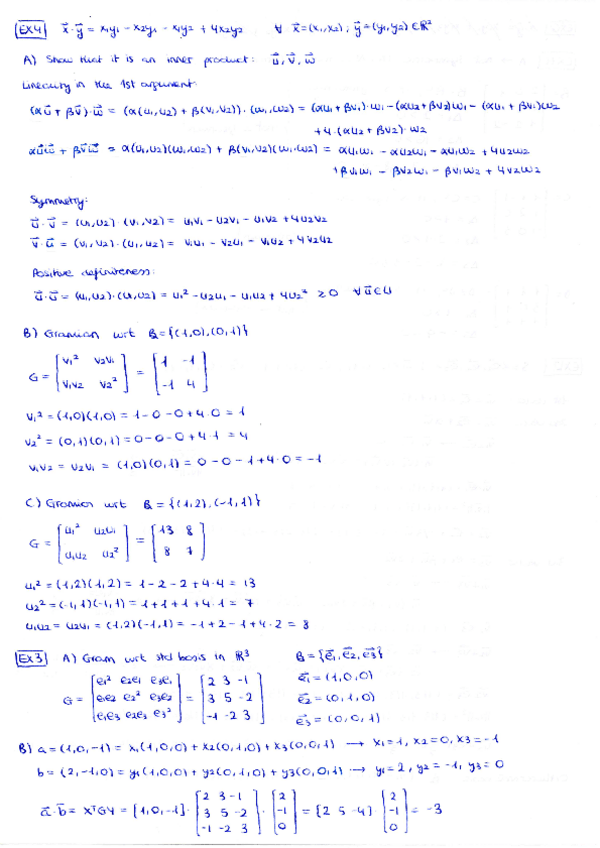 EX4 x⃗·y⃗ = x₁y₁ - x₂y₁ - x₁y₂ + 4x₂y₂ ∀ x⃗=(x₁,x₂); y⃗=(y₁,y₂) ∈ ℝ²
A) Show that it is an inner product: u⃗, v⃗, w⃗
Linearity in the 1st argument:
(αu⃗ + βv⃗)·w⃗ = (α(u₁,u₂) + β(v₁,v₂))·(w₁,w₂) = (αu₁ + βv₁)·w₁ - (αu₂ + βv₂)w₁ - (αu₁ + βv₁)w₂
+ 4·(αu₂ + βv₂)·w₂
αu⃗w⃗ + βv⃗w⃗ = α(u₁,u₂)(w₁,w₂) + β(v₁,v₂)(w₁,w₂) = αu₁w₁ - αu₂w₁ - αu₁w₂ + 4u₂w₂
+ βv₁w₁ - βv₂w₁ - βv₁w₂ + 4v₂w₂
Symmetry:
u⃗·v⃗ = (u₁,u₂)·(v₁,v₂) = u₁v₁ - u₂v₁ - u₁v₂ + 4u₂v₂
v⃗·u⃗ = (v₁,v₂)·(u₁,u₂) = v₁u₁ - v₂u₁ - v₁u₂ + 4v₂u₂
Positive definiteness:
u⃗·u⃗ = (u₁,u₂)·(u₁,u₂) = u₁² - u₂u₁ - u₁u₂ + 4u₂² ≥ 0 ∀u⃗∈U
B) Gramian wrt B={(1,0),(0,1)}
G = [v₁² v₂v₁; v₁v₂ v₂²] = [1 -1; -1 4]
v₁² = (1,0)(1,0) = 1-0-0+4·0 = 1
v₂² = (0,1)(0,1) = 0-0-0+4·1 = 4
v₁v₂ = v₂v₁ = (1,0)(0,1) = 0-0-1+4·0 = -1
C) Gramian wrt B={(1,2),(-1,1)}
G = [u₁² u₂u₁; u₁u₂ u₂²] = [13 8; 8 7]
u₁² = (1,2)(1,2) = 1-2-2+4·4 = 13
u₂² = (-1,1)(-1,1) = 1+1+1+4·1 = 7
u₁u₂ = u₂u₁ = (1,2)(-1,1) = -1+2-1+4·2 = 8
EX3 A) Gram wrt std basis in ℝ³ B = {e⃗₁, e⃗₂, e⃗₃}
G = [e₁² e₂e₁ e₃e₁; e₁e₂ e₂² e₃e₂; e₁e₃ e₂e₃ e₃²] = [2 3 -1; 3 5 -2; -1 -2 3]
e⃗₁ = (1,0,0)
e⃗₂ = (0,1,0)
e⃗₃ = (0,0,1)
B) a = (1,0,-1) = x₁(1,0,0) + x₂(0,1,0) + x₃(0,0,1) → x₁=1, x₂=0, x₃=-1
b = (2,-1,0) = y₁(1,0,0) + y₂(0,1,0) + y₃(0,0,1) → y₁=2, y₂=-1, y₃=0
a⃗·b⃗ = XᵀGY = [1,0,-1]·[2 3 -1; 3 5 -2; -1 -2 3]·[2; -1; 0] = {2 5 -4}·[2; -1; 0] = -3